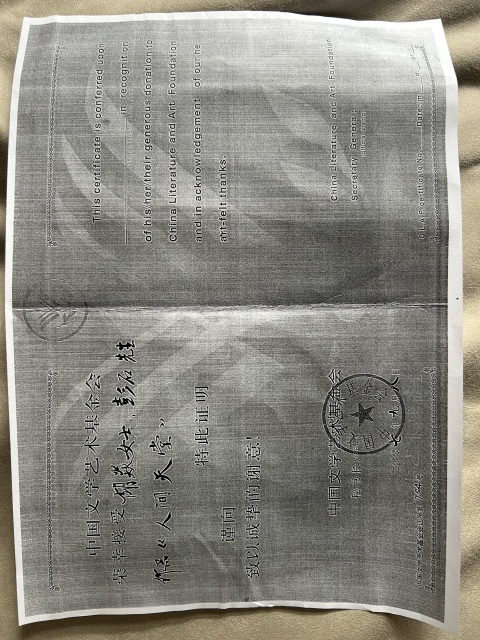 中国文学艺术基金会
荣幸接受 女士、彭石 先生
《人间天堂》
特此证明
谨向
致以诚挚的谢意!
中国文学艺术基金会
秘书长
This certificate is conferred upon
in recognition
of his/her/their generous donation to
China Literature and Art Foundation
and in acknowledgement of our he
art-felt thanks.
China Literature and Art Foundation
Secretary General